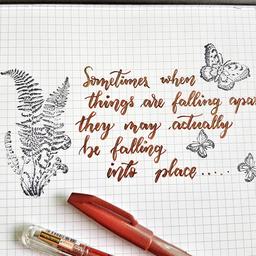 Sometimes when
things are falling apar
they may actually
be falling
into place.....